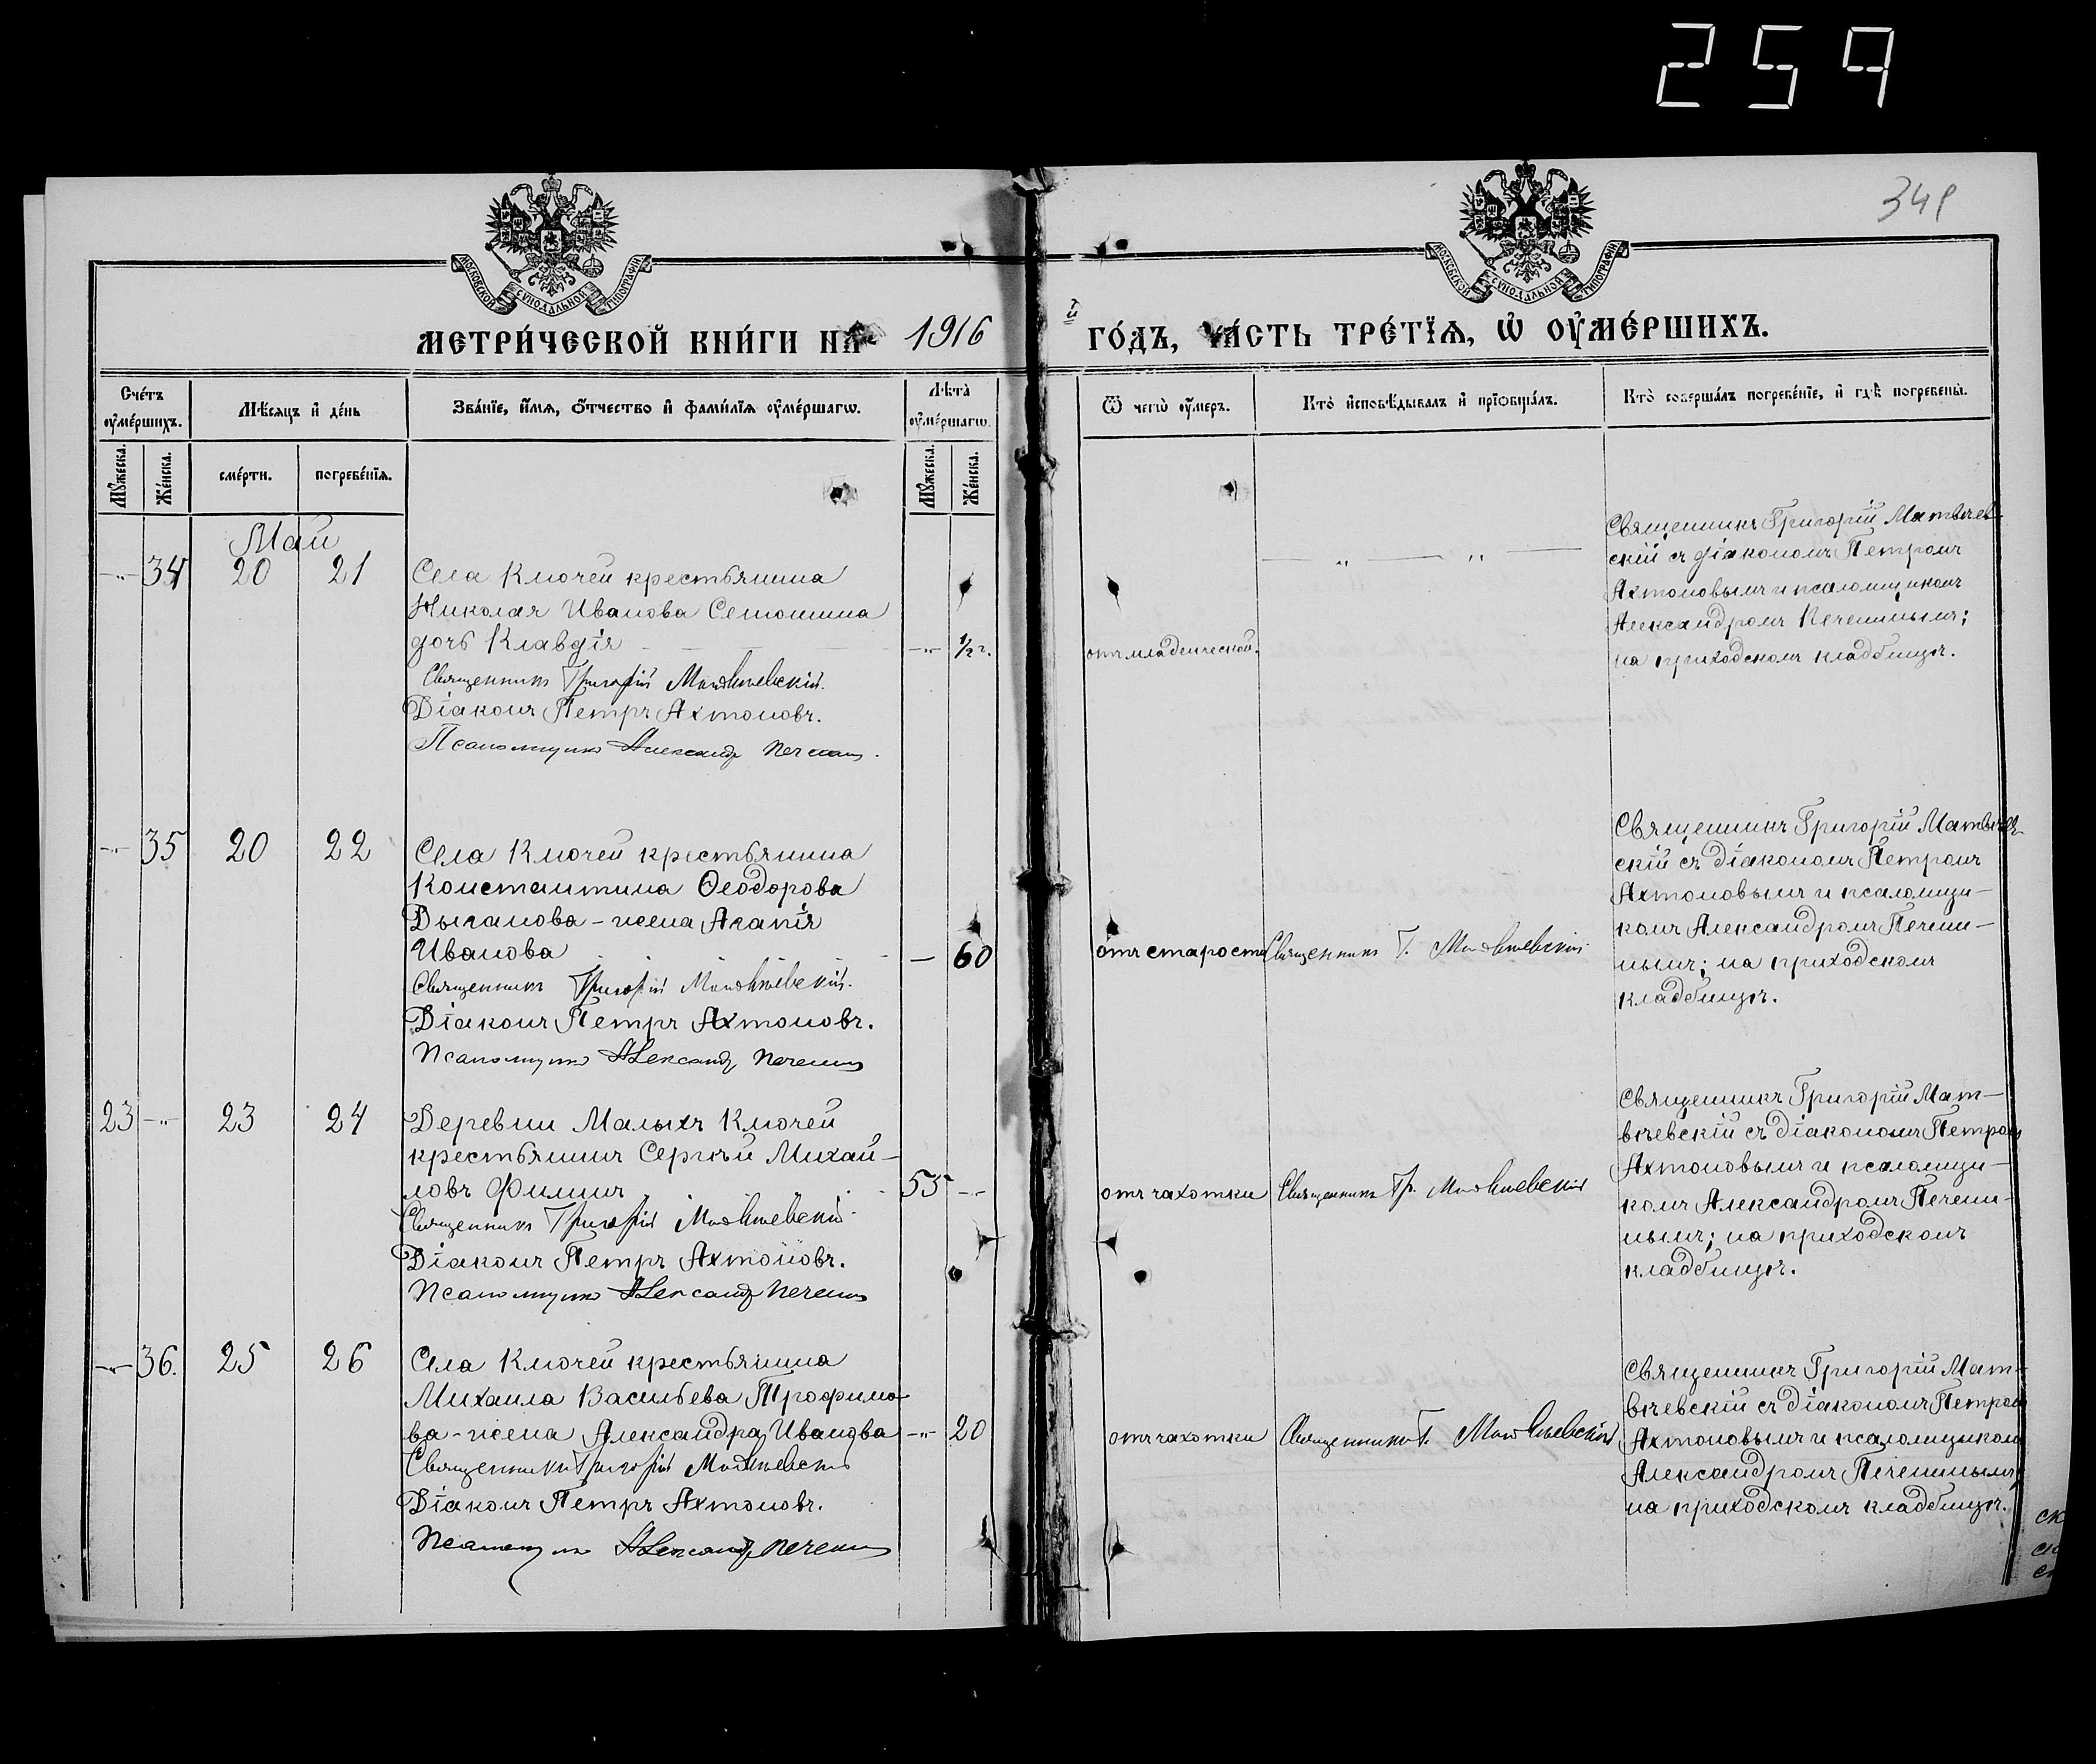 259
341
МОСКОВСКОЙ СУНОДАЛЬНОЙ ТИПОГРАФІИ
МОСКОВСКОЙ СУНОДАЛЬНОЙ ТИПОГРАФІИ
МЕТРИ́ЧЕСКОЙ КНИ́ГИ НА 1916
й ГО́ДЪ, ЧА́СТЬ ТРЕ́ТЇѦ, Ѡ҆ ОУ҆МЕ́РШИХЪ.
Сче́тъ оу҆ме́ршихъ.
Мѣ́сѧцъ и҆ де́нь
Зва́нїе, и҆́мѧ, ѻ҆́тчество и҆ фами́лїѧ оу҆ме́ршагѡ.
Лѣ́та оу҆ме́ршагѡ.
Ѿ чегѡ̀ оу҆́меръ.
Кто̀ и҆сповѣ́дывалъ и҆ прїѡбща́лъ.
Кто̀ соверша́лъ погребе́нїе, и҆ гдѣ̀ погребены̀.
Мꙋ́жеска.
Же́нска.
сме́рти.
погребе́нїѧ.
Мꙋ́жеска.
Же́нска.
Май
-"- 34 20 21
Села Ключей крестьянина
Николая Ивана Сенюшина
дочь Клавдія -"- 1/2 г.
Священникъ Григорій Матвѣевскій.
Діаконъ Петръ Ахтоновъ.
Псаломщикъ Александръ Печенин.
отъ младенческой.
— " — " —
Священникъ Григорій Матвѣев-
скій съ діакономъ Петромъ
Ахтоновымъ и псаломщикомъ
Александромъ Печенинымъ;
на приходскомъ кладбищѣ.
-"- 35 20 22
Села Ключей крестьянина
Константина Ѳеодорова
Цыганова - жена Агапія
Иванова — 60
Священникъ Григорій Матвѣевскій.
Діаконъ Петръ Ахтоновъ.
Псаломщикъ Александръ Печенин
отъ старости
Священникъ Г. Матвѣевскій.
Священникъ Григорій Матвѣев-
скій съ діакономъ Петромъ
Ахтоновымъ и псаломщи-
комъ Александромъ Печени-
нымъ; на приходскомъ
кладбищѣ.
23 -"- 23 24
Деревни Малыхъ Ключей
крестьянинъ Сергѣй Михай-
ловъ Филинъ 55 -"-
Священникъ Григорій Матвѣевскій.
Діаконъ Петръ Ахтоновъ.
Псаломщикъ Александръ Печенин
отъ чахотки
Священникъ Гр. Матвѣевскій
Священникъ Григорій Мат-
вѣевскій съ діакономъ Петромъ
Ахтоновымъ и псаломщи-
комъ Александромъ Печени-
нымъ; на приходскомъ
кладбищѣ.
-"- 36. 25 26
Села Ключей крестьянина
Михаила Васильева Трофимо-
ва - жена Александра Иванова -"- 20
Священникъ Григорій Матвѣевскій
Діаконъ Петръ Ахтоновъ.
Псаломщикъ Александръ Печенин
отъ чахотки
Священникъ Г. Матвѣевскій
Священникъ Григорій Мат-
вѣевскій съ діакономъ Петромъ
Ахтоновымъ и псаломщикомъ
Александромъ Печенинымъ;
на приходскомъ кладбищѣ.